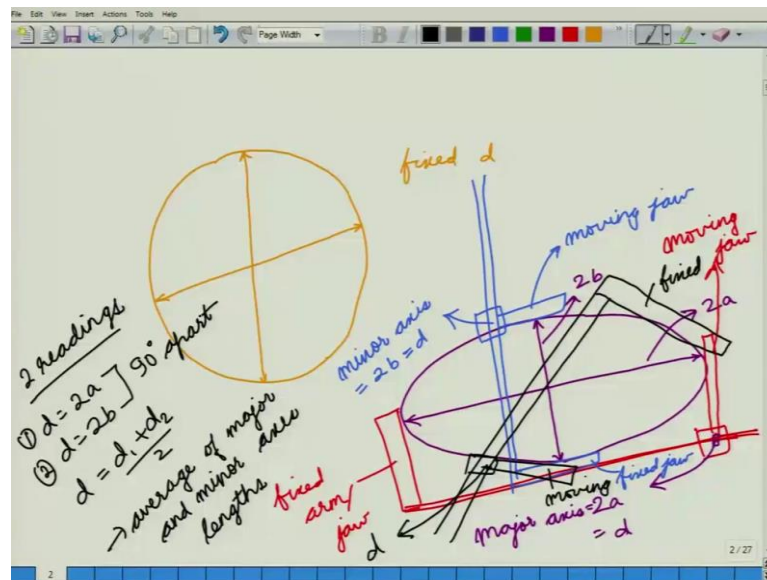 File Edit View Insert Actions Tools Help
Page Width
B I
fixed d
moving jaw
moving
jaw
fixed
2b
2a
minor axis
= 2b = d
2 readings
① d = 2a
② d = 2b
90° apart
d = d₁ + d₂
2
→ average of major
and minor axes
lengths
fixed
arm/
jaw
d
moving
fixed jaw
major axis = 2a
= d
2 / 27
2